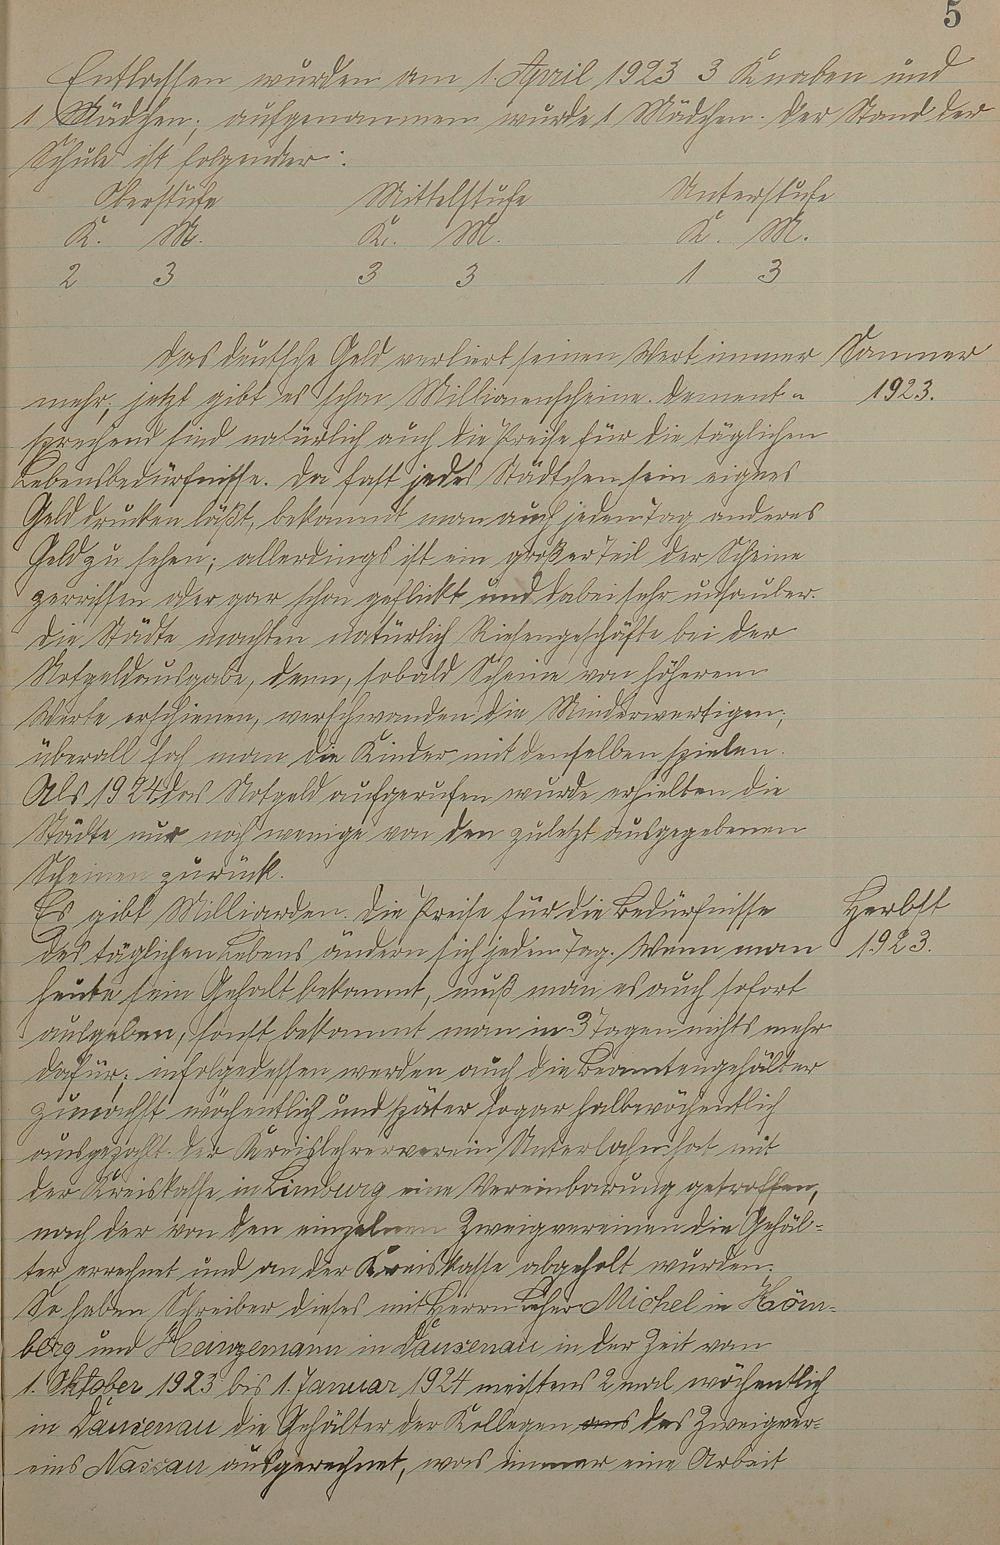 5
Entlassen wurden am 1. April 1923 3 Knaben und
1 Mädchen; aufgenommen wurde 1 Mädchen. Der Stand der
Schule ist folgender:
Oberstufe Mittelstufe Unterstufe
K. M. K. M. K. M.
2 3 3 3 1 3
Das deutsche Geld verliert seinen Wert immer Sommer
mehr, jetzt gibt es schon Millionenscheine. Dement- 1923.
sprechend sind natürlich auch die Preise für die täglichen
Lebensbedürfnisse. Da fast jedes Städtchen sein eignes
Geld drucken läßt, bekommt man auch jeden Tag anderes
Geld zu sehen; allerdings ist ein großer Teil der Scheine
zerrissen oder gar schon geflickt und dabei sehr unsauber.
Die Städte machten natürlich Riesengeschäfte bei der
Notgeldausgabe, denn, sobald Scheine von höherem
Werte erschienen, verschwanden die Minderwertigen;
überall sah man die Kinder mit denselben spielen.
Als 1924 das Notgeld aufgerufen wurde erhielten die
Städte nur noch wenige von den zuletzt ausgegebenen
Scheinen zurück.
Es gibt Milliarden. Die Preise für die Bedürfnisse Herbst
des täglichen Lebens ändern sich jeden Tag. Wenn man 1923.
heute sein Gehalt bekommt, muß man es auch sofort
ausgeben, sonst bekommt man in 3 Tagen nichts mehr
dafür; infolgedessen werden auch die Beamtengehälter
zunächst wöchentlich und später sogar halbwöchentlich
ausgezahlt. Der Kreislehrerverein Unterlahn hat mit
der Kreiskasse in Limburg eine Vereinbarung getroffen,
nach der von den einzelnen Zweigvereinen die Gehäl-
ter errechnet und an der Kreiskasse abgeholt wurden.
So haben Schreiber dieses mit Herrn Lehrer Michel in Höm-
berg und Heinzemann in Dausenau in der Zeit vom
1. Oktober 1923 bis 1. Januar 1924 meistens 2 mal wöchentlich
in Dausenau die Gehälter der Kollegen aus des Zweigver-
eins Nassau ausgerechnet, was immer eine Arbeit